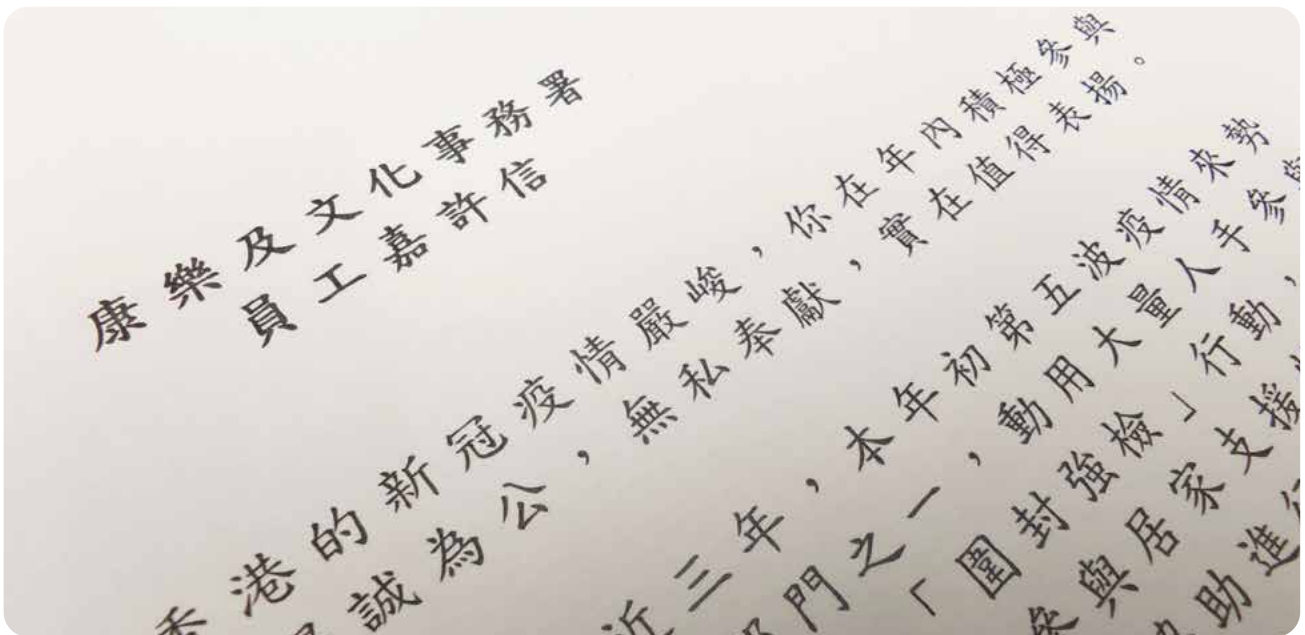 康樂及文化事務署
員工嘉許信
香港的新冠疫情嚴峻，你在年內積極參與
誠為公，無私奉獻，實在值得表揚。
近三年，本年初第五波疫情來勢
部門之一，動用大量人手參與
「圍封強檢」行動，
參與居家支援
助進行